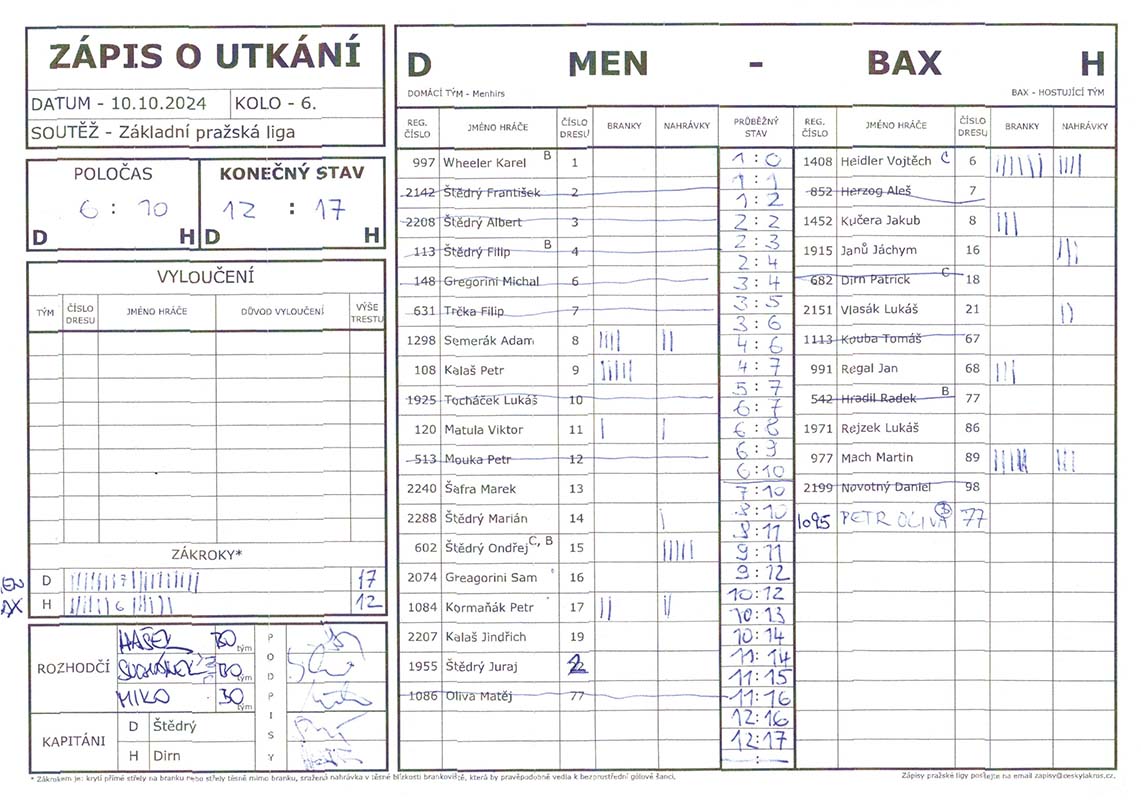 ZÁPIS O UTKÁNÍ
DATUM - 10.10.2024 KOLO - 6.
SOUTĚŽ - Základní pražská liga
POLOČAS KONEČNÝ STAV
6 : 10 12 : 17
D H D H
VYLOUČENÍ
TÝM ČÍSLO DRESU JMÉNO HRÁČE DŮVOD VYLOUČENÍ VÝŠE TRESTU
ZÁKROKY*
D 7 17
H 6 12
ROZHODČÍ
HAŠEK BO tým
BO tým
MIKO BO tým
PODPISY
KAPITÁNI
D Štědrý
H Dirn
D MEN - BAX H
DOMÁCÍ TÝM - Menhirs BAX - HOSTUJÍCÍ TÝM
REG. ČÍSLO JMÉNO HRÁČE ČÍSLO DRESU BRANKY NAHRÁVKY PRŮBĚŽNÝ STAV REG. ČÍSLO JMÉNO HRÁČE ČÍSLO DRESU BRANKY NAHRÁVKY
997 Wheeler Karel B 1
2142 Štědrý František 2
2208 Štědrý Albert 3
113 Štědrý Filip B 4
148 Gregorini Michal 6
631 Trčka Filip 7
1298 Semerák Adam 8 |||| ||
108 Kalaš Petr 9 |||||
1925 Tocháček Lukáš 10
120 Matula Viktor 11 | |
513 Mouka Petr 12
2240 Šafra Marek 13
2288 Štědrý Marián 14 |
602 Štědrý Ondřej C, B 15 |||||
2074 Greagorini Sam 16
1084 Kormaňák Petr 17 || ||
2207 Kalaš Jindřich 19
1955 Štědrý Juraj
1086 Oliva Matěj 77
1:0
1:1
1:2
2:2
2:3
2:4
3:4
3:5
3:6
4:6
4:7
5:7
6:7
6:8
6:9
6:10
7:10
8:10
8:11
9:11
9:12
10:12
10:13
10:14
11:14
11:15
11:16
12:16
12:17
:
1408 Heidler Vojtěch C 6
852 Herzog Aleš 7
1452 Kučera Jakub 8 |||
1915 Janů Jáchym 16 |||
682 Dirn Patrick C 18
2151 Vlasák Lukáš 21 ||
1113 Kouba Tomáš 67
991 Regal Jan 68 |||
542 Hradil Radek B 77
1971 Rejzek Lukáš 86
977 Mach Martin 89
2199 Novotný Daniel 98
1095 PETR OLIVA B 77
* Zákrokem je: krytí přímé střely na branku nebo střely těsně mimo branku, sražená nahrávka v těsné blízkosti brankoviště, která by pravěpodobně vedla k bezprostřední gólové šanci.
Zápisy pražské ligy posílejte na email zapisy@ceskylakros.cz.